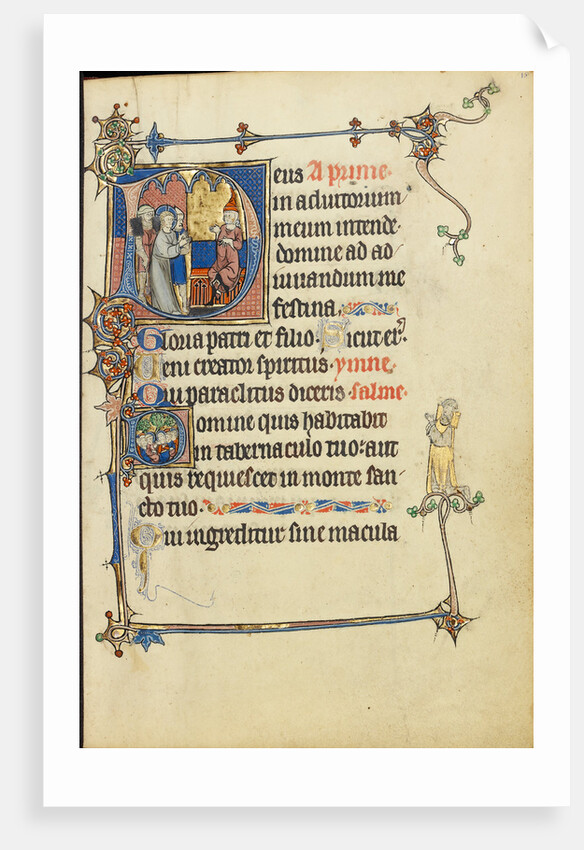 Deus A prime.
in adiutorium
meum intende.
domine ad ad
iuuandum me
festina.
Gloria patri et filio. Sicut er
Ueni creator spiritus. ymne.
Qui paraclitus diceris. salme.
Domine quis habitabit
in tabernaculo tuo: aut
quis requiescet in monte san
cto tuo.
Qui ingreditur sine macula